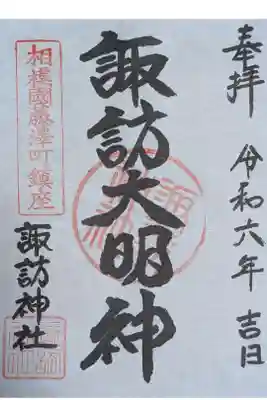 奉拝 令和六年 吉日
諏訪大明神
相模國藤澤町鎮座
諏訪神社